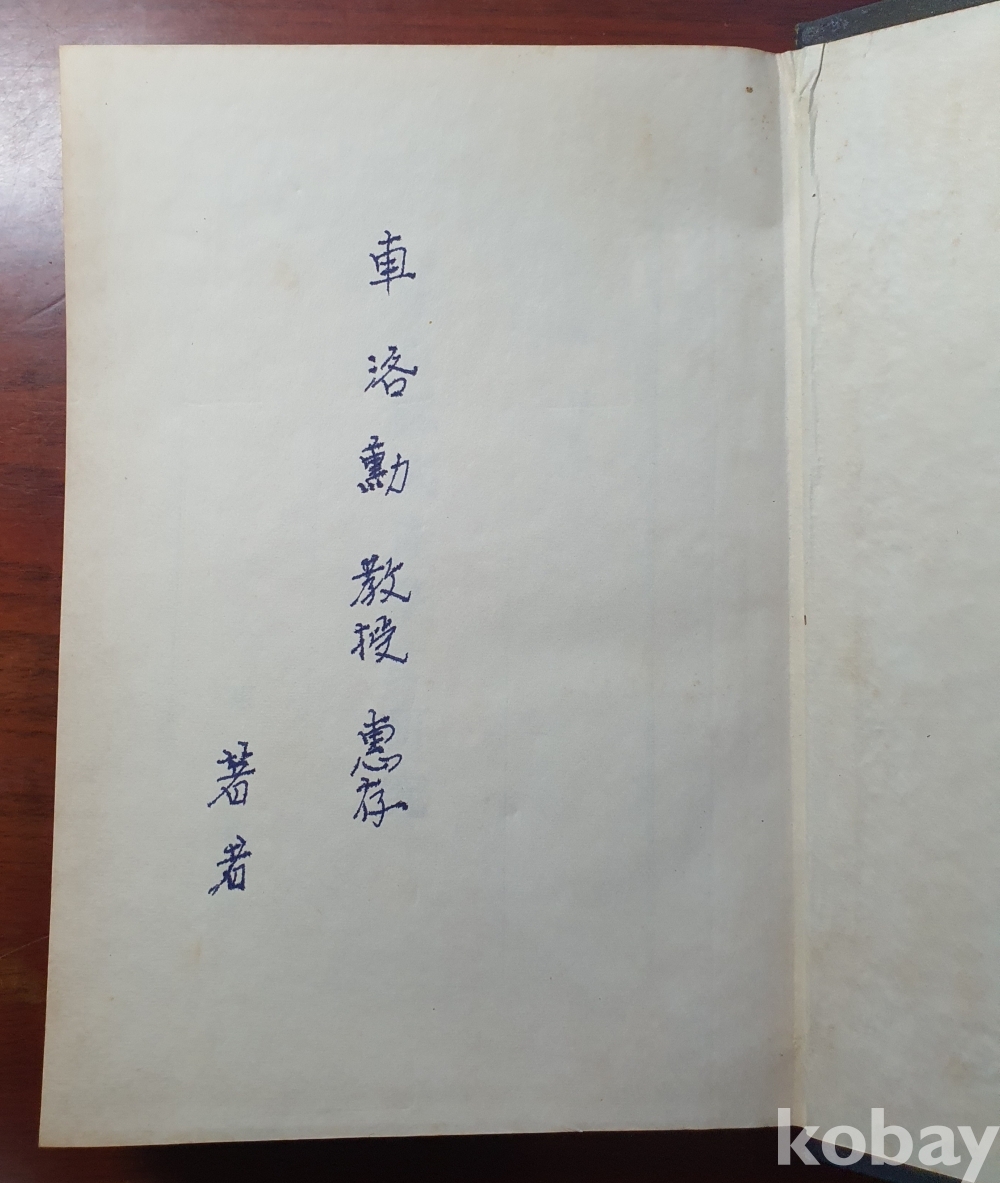 車洛勳 教授 惠存
著者
kobay